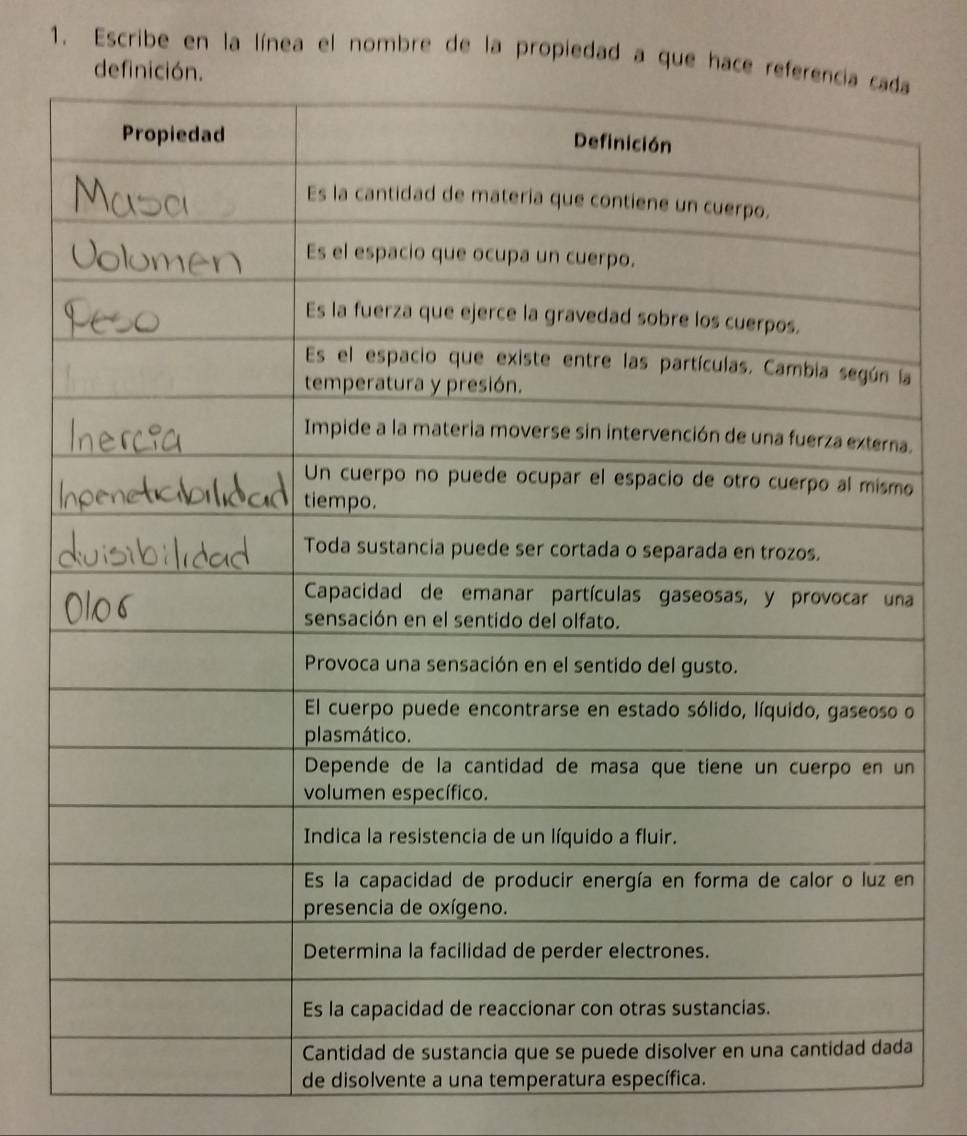 1. Escribe en la línea el nombre de la propiedad a que hace referencia cada
definición.
Propiedad
Definición
Masa
Es la cantidad de materia que contiene un cuerpo.
Volumen
Es el espacio que ocupa un cuerpo.
Peso
Es la fuerza que ejerce la gravedad sobre los cuerpos.
Es el espacio que existe entre las partículas. Cambia según la
temperatura y presión.
Inercia
Impide a la materia moverse sin intervención de una fuerza externa.
Inpeneticibilidad
Un cuerpo no puede ocupar el espacio de otro cuerpo al mismo
tiempo.
divisibilidad
Toda sustancia puede ser cortada o separada en trozos.
Olor
Capacidad de emanar partículas gaseosas, y provocar una
sensación en el sentido del olfato.
Provoca una sensación en el sentido del gusto.
El cuerpo puede encontrarse en estado sólido, líquido, gaseoso o
plasmático.
Depende de la cantidad de masa que tiene un cuerpo en un
volumen específico.
Indica la resistencia de un líquido a fluir.
Es la capacidad de producir energía en forma de calor o luz en
presencia de oxígeno.
Determina la facilidad de perder electrones.
Es la capacidad de reaccionar con otras sustancias.
Cantidad de sustancia que se puede disolver en una cantidad dada
de disolvente a una temperatura específica.